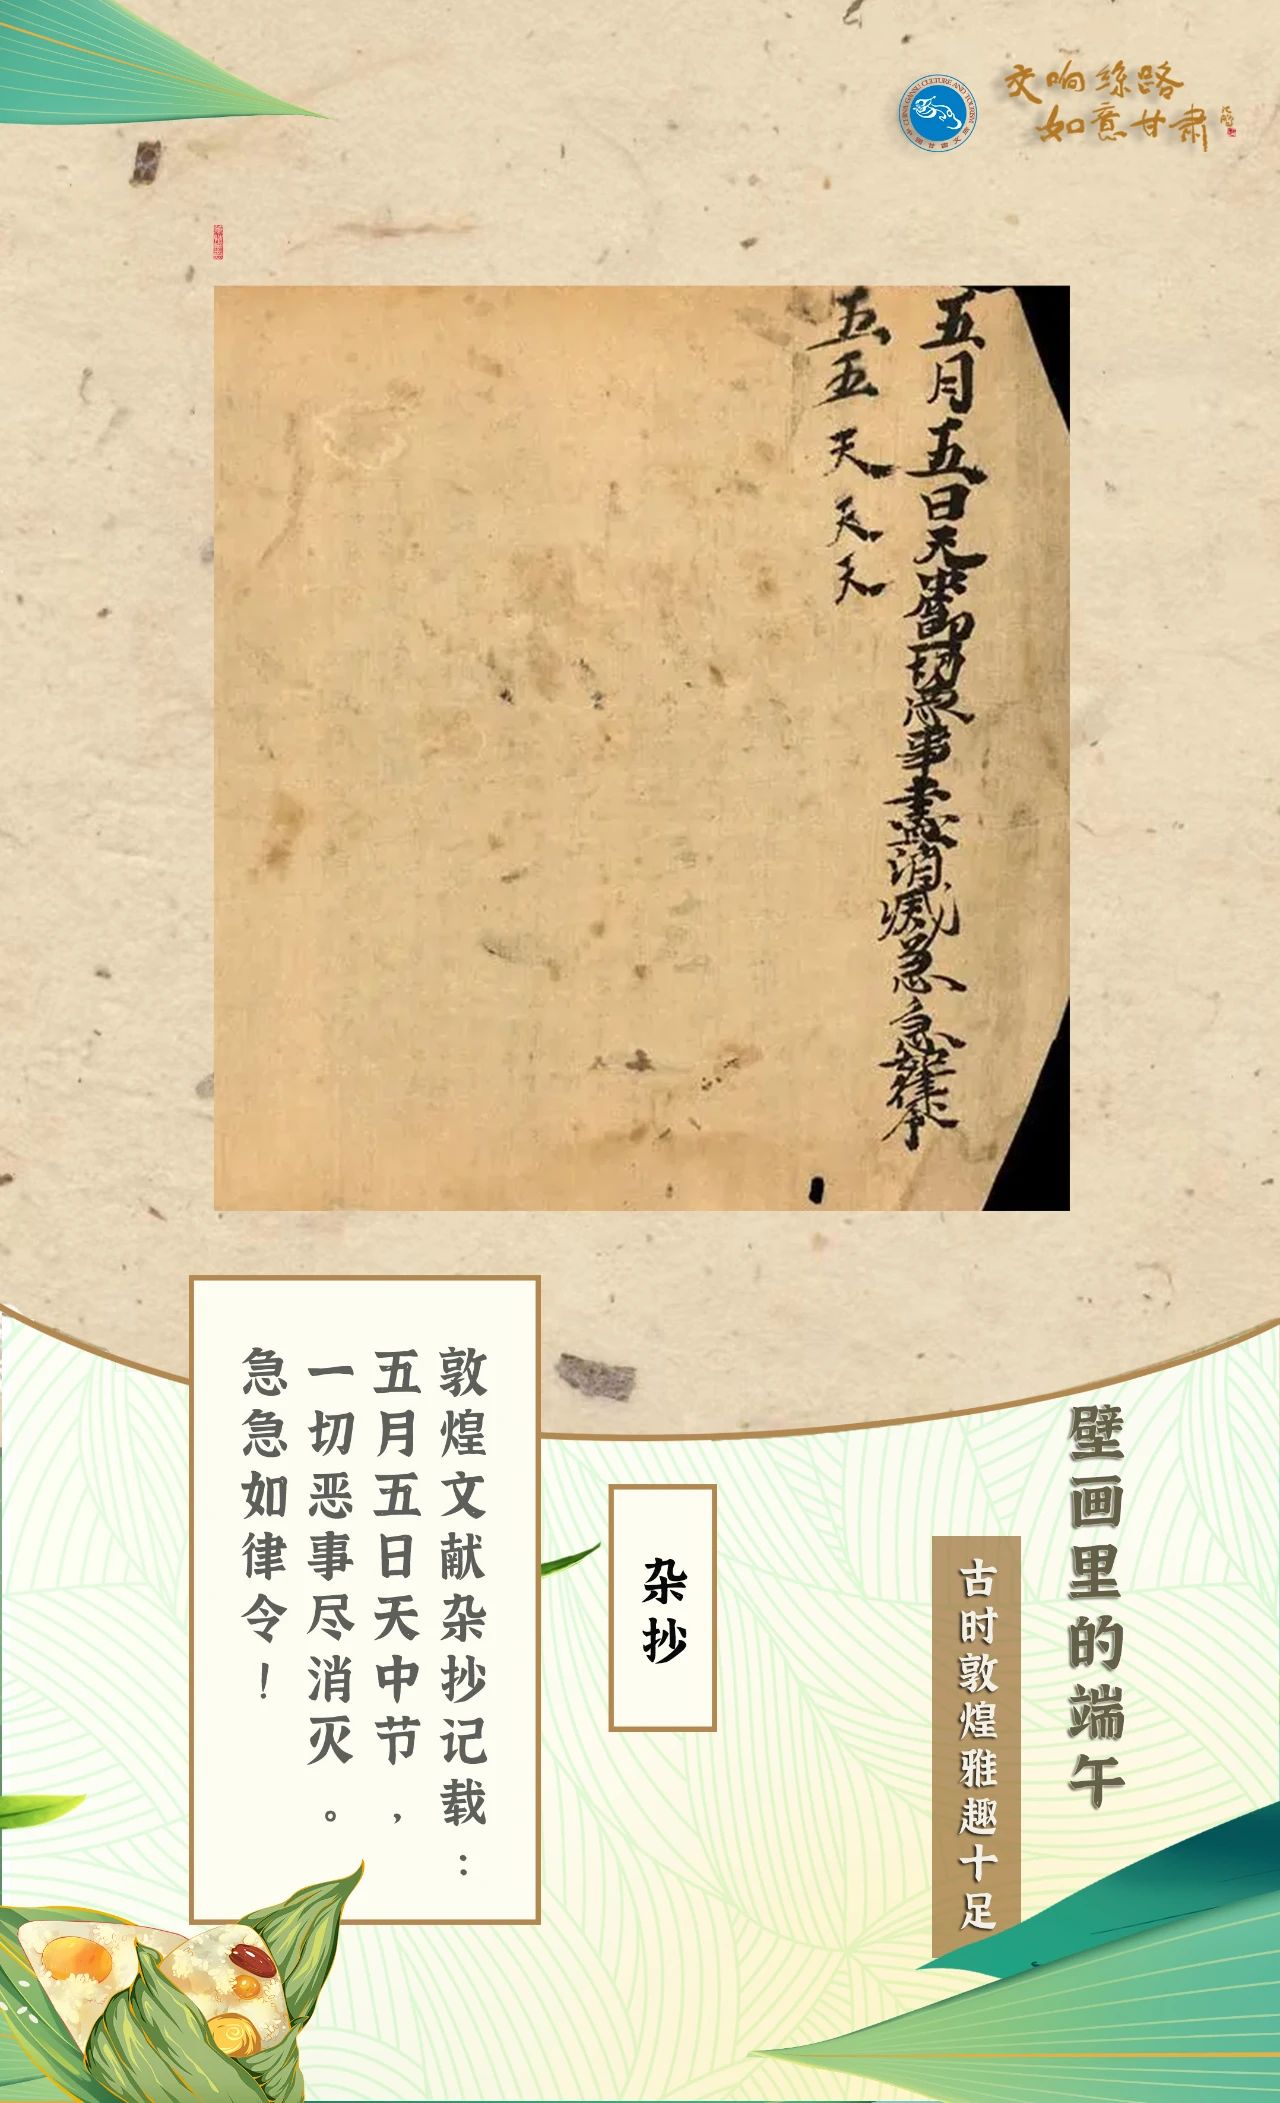 交响丝路
如意甘肃
CHINA GANSU CULTURE AND TOURISM
中国甘肃文旅
五月五日天中節一切惡事盡消滅急急如律令
五五天天天
壁画里的端午
古时敦煌雅趣十足
杂抄
敦煌文献杂抄记载：
五月五日天中节，
一切恶事尽消灭。
急急如律令！